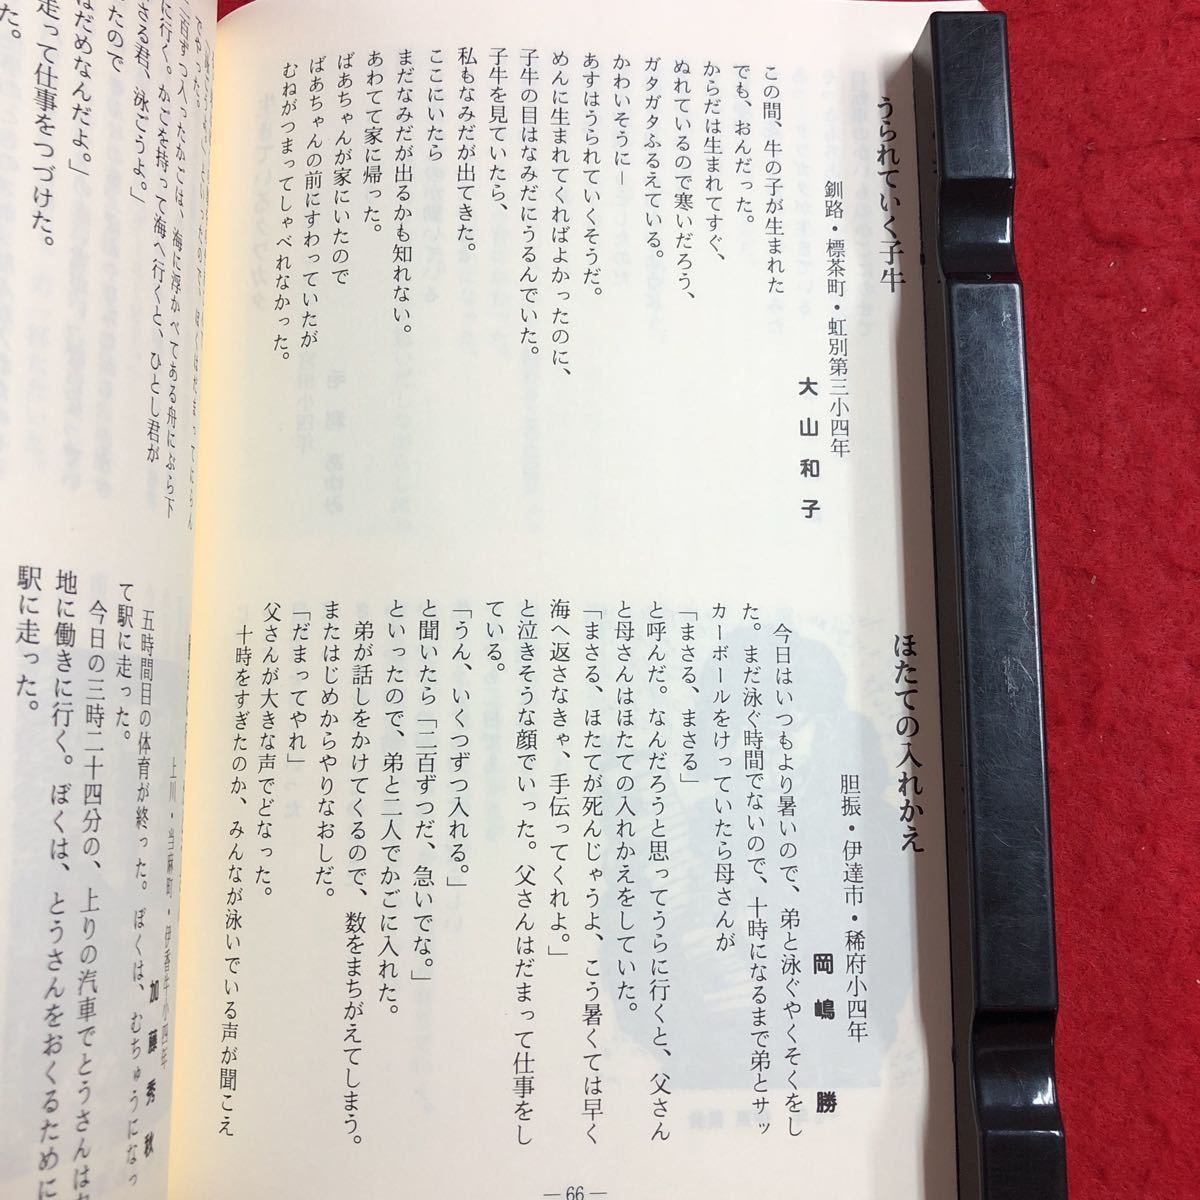 うられていく子牛
釧路・標茶町・虹別第三小四年
大山和子
この間、牛の子が生まれた
でも、おんだった。
からだは生まれてすぐ、
ぬれているので寒いだろう、
ガタガタふるえている。
かわいそうに―
あすはうられていくそうだ。
めんに生まれてくればよかったのに、
子牛の目はなみだにうるんでいた。
子牛を見ていたら、
私もなみだが出てきた。
ここにいたら
まだなみだが出るかも知れない。
あわてて家に帰った。
ばあちゃんが家にいたので
ばあちゃんの前にすわっていたが
むねがつまってしゃべれなかった。
ほたての入れかえ
胆振・伊達市・稀府小四年
岡嶋勝
今日はいつもより暑いので、弟と泳ぐやくそくをし
た。まだ泳ぐ時間でないので、十時になるまで弟とサッ
カーボールをけっていたら母さんが
「まさる、まさる」
と呼んだ。なんだろうと思ってうらに行くと、父さん
と母さんはほたての入れかえをしていた。
「まさる、ほたてが死んじゃうよ、こう暑くては早く
海へ返さなきゃ、手伝ってくれよ。」
と泣きそうな顔でいった。父さんはだまって仕事をし
ている。
「うん、いくつずつ入れる。」
と聞いたら「二百ずつだ、急いでな。」
といったので、弟と二人でかごに入れた。
弟が話しをかけてくるので、数をまちがえてしまう。
またはじめからやりなおしだ。
「だまってやれ」
父さんが大きな声でどなった。
十時をすぎたのか、みんなが泳いでいる声が聞こえ
―66―
二百ずつ入ったかごは、海に浮かべてある舟にぶら下
に行く。かごを持って海へ行くと、ひとし君が
さる君、泳ごうよ。」
たので
はだめなんだよ。」
走って仕事をつづけた。
た。
上川・当麻町・伊香牛小四年
加藤秀秋
五時間目の体育が終った。ぼくは、むちゅうになっ
て駅に走った。
今日の三時二十四分の、上りの汽車でとうさんは
地に働きに行く。ぼくは、とうさんをおくるために
駅に走った。